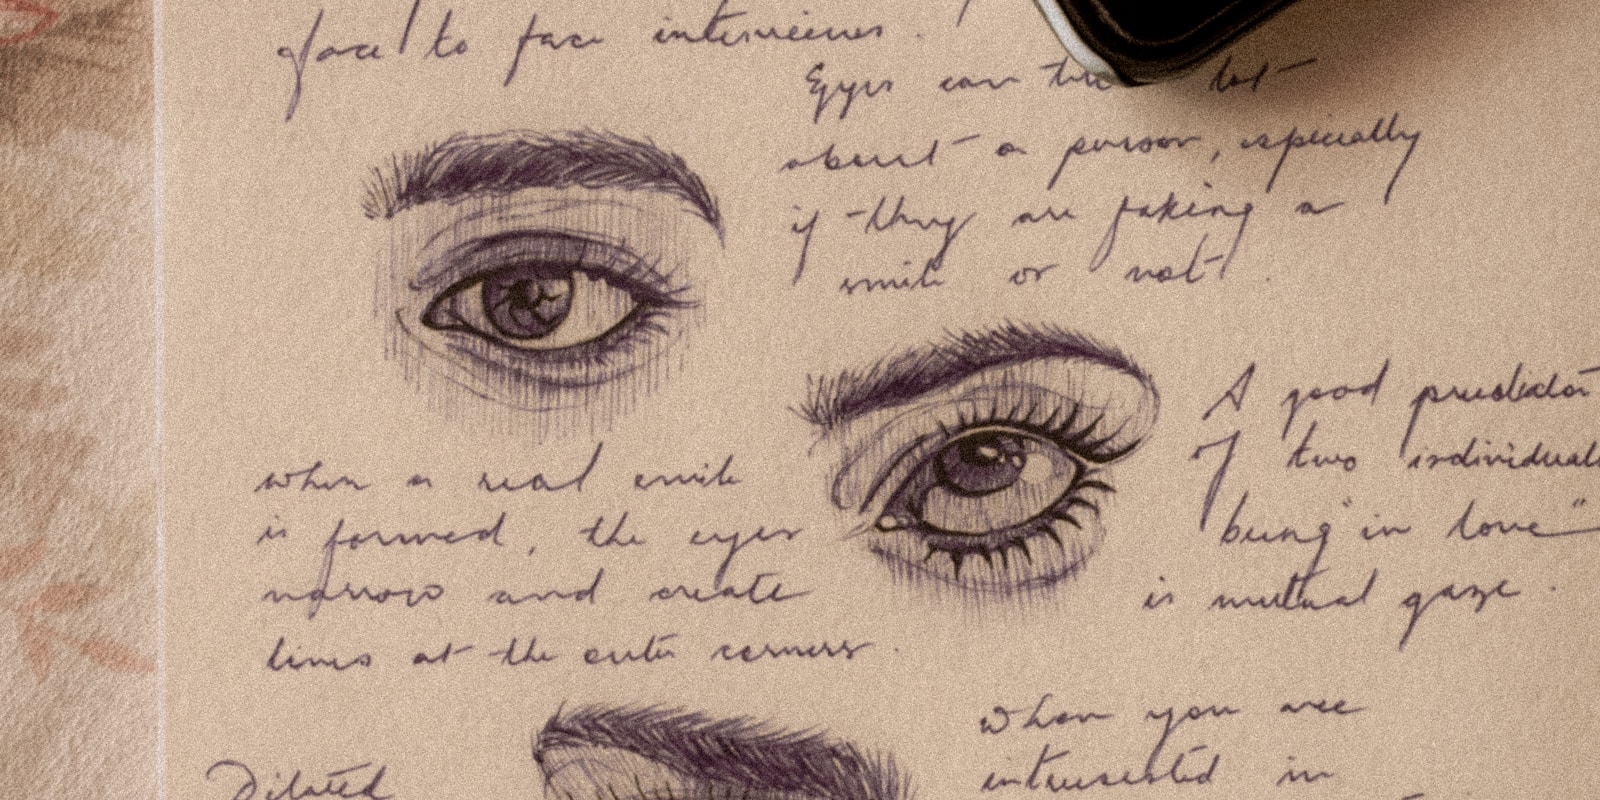 face to face interviews.
Eyes can tell lot
about a person, especially
if they are faking a
smile or not.
when a real smile
is formed, the eyes
narrow and create
lines at the outer corners.
A good predictor
of two individuals
being "in love"
is mutual gaze.
Dilated
when you are
interested in